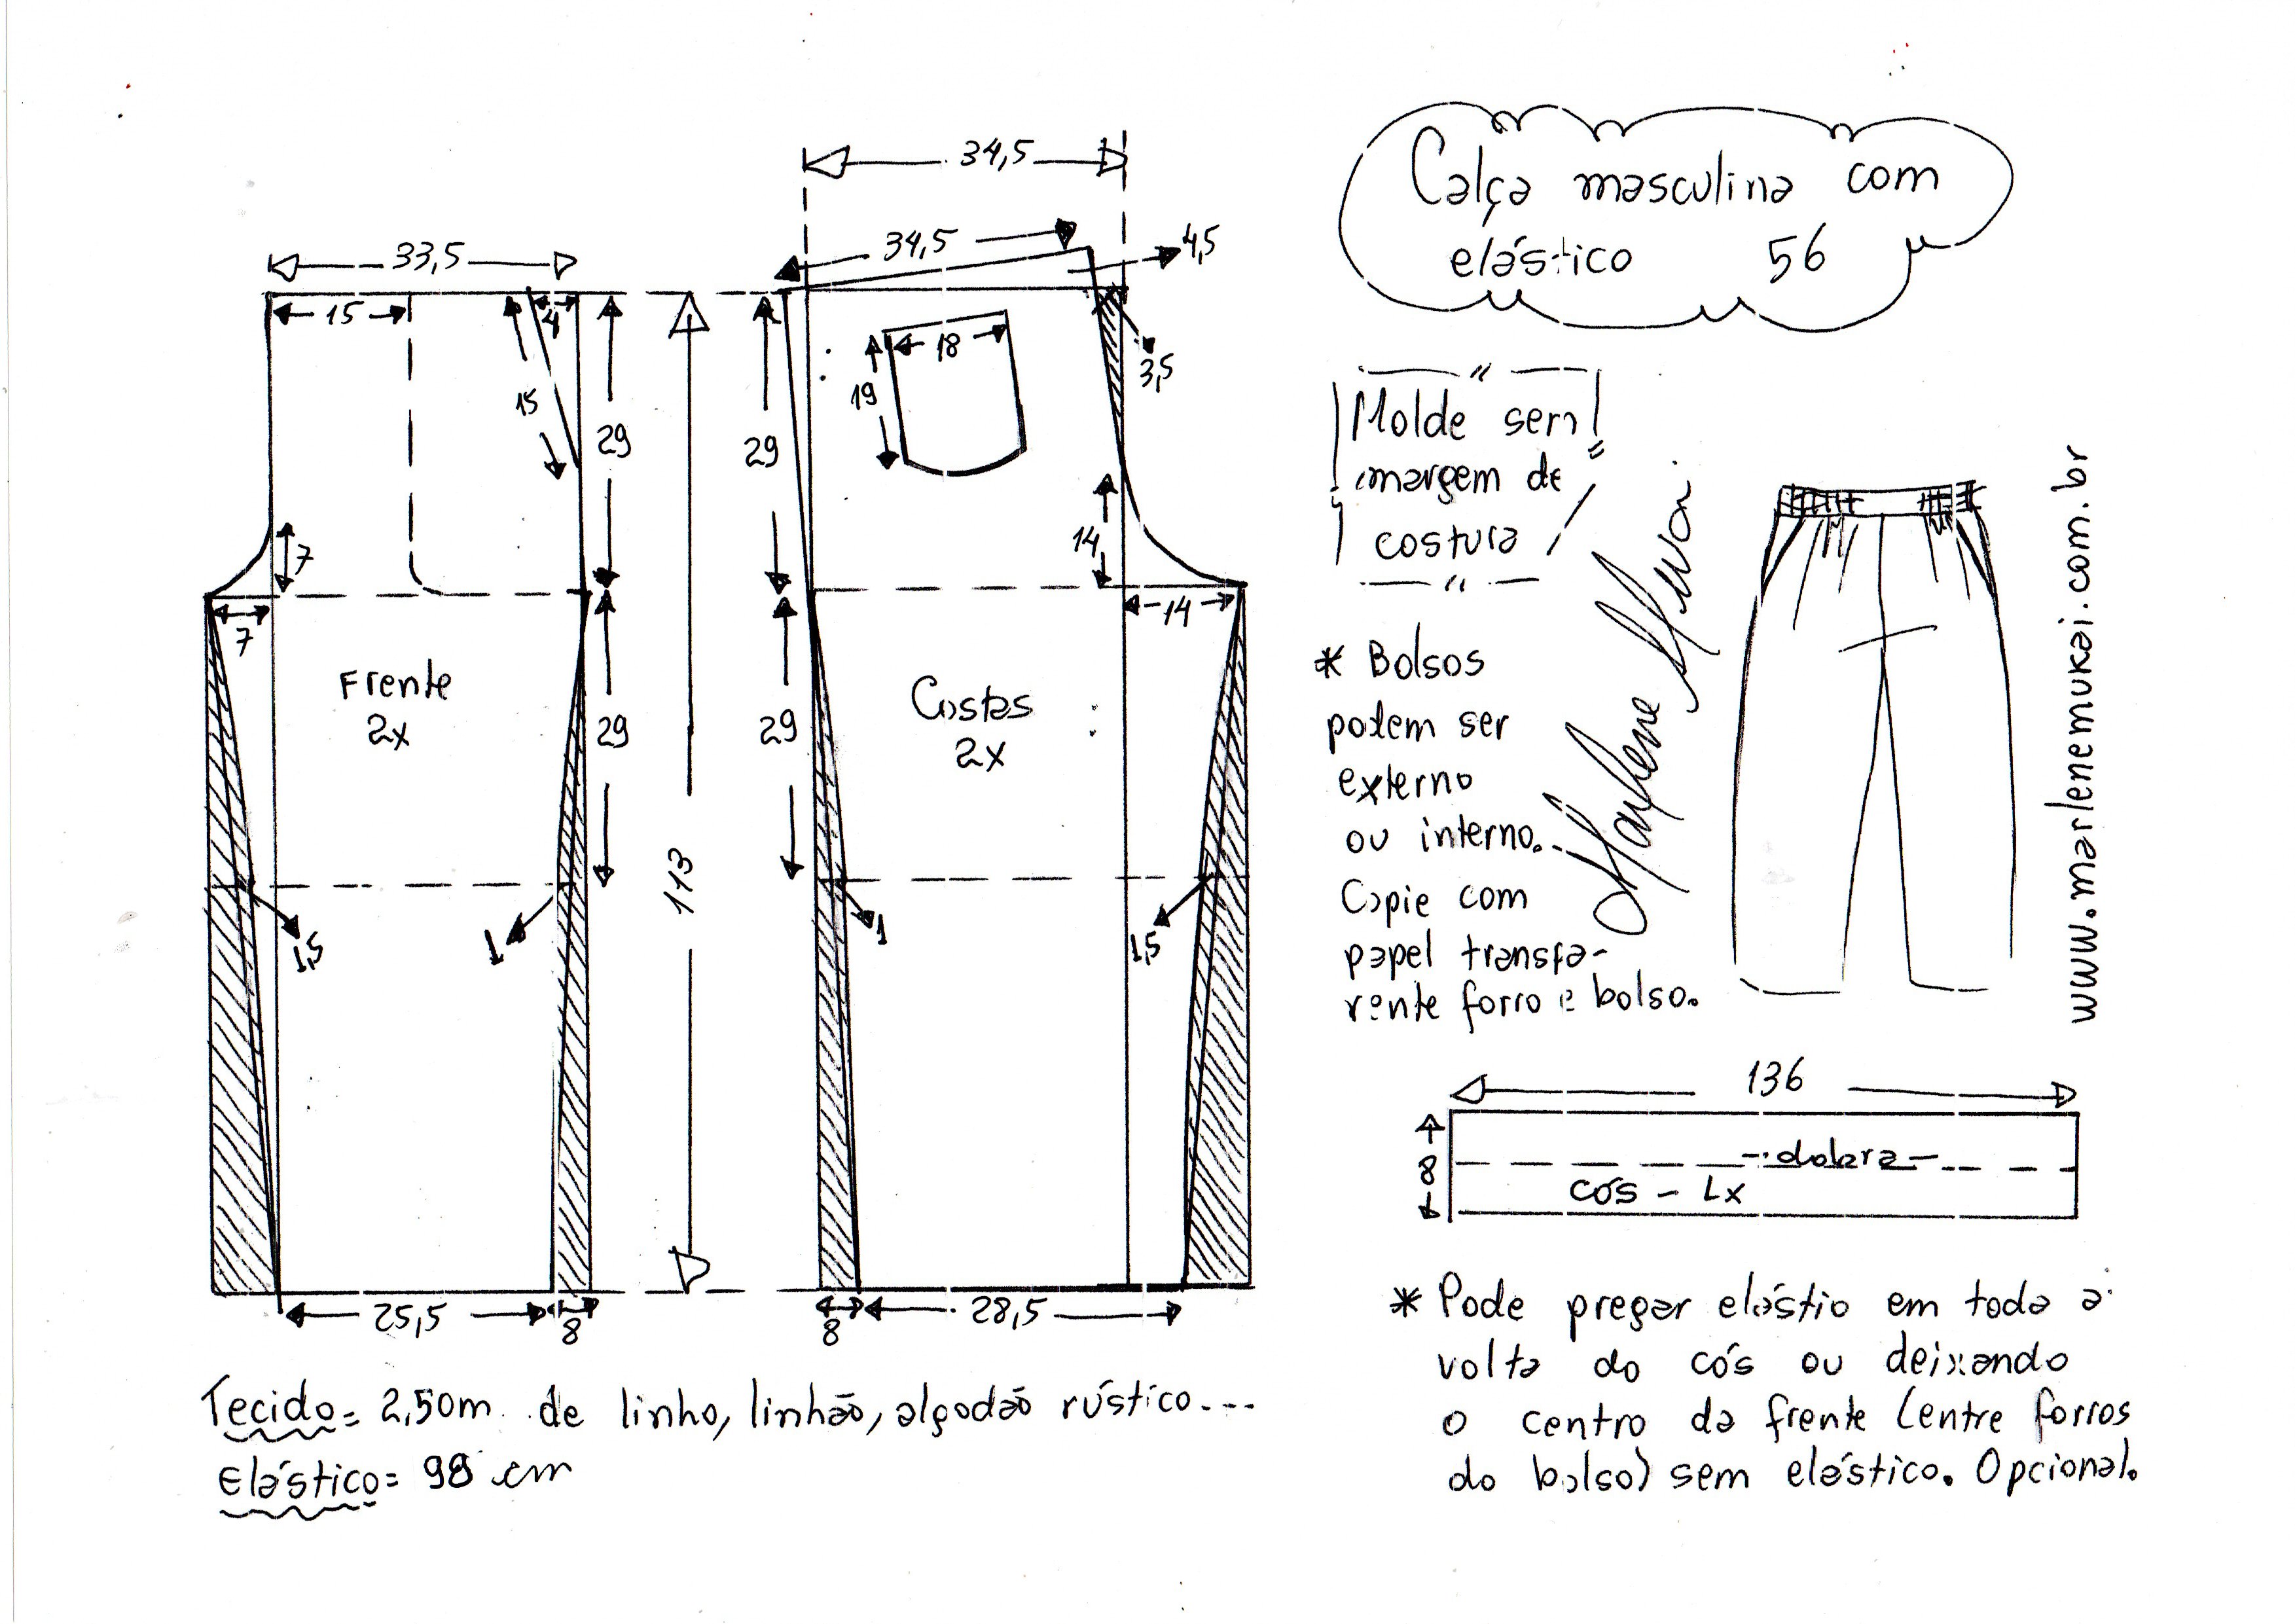 Calça masculina com
elástico 56
34,5
33,5
34,5
4,5
15
4
15
29
29
18
19
3,5
7
14
7
14
Frente
2x
29
113
29
Costas
2x
1,5
1
1
1,5
25,5
8
8
28,5
Molde sem
margem de
costura
* Bolsos
podem ser
externo
ou interno.
Copie com
papel transfa-
rente forro e bolso.
Marlene Mukai
www.marlenemukai.com.br
136
8
dobra
cós - 1x
Tecido= 2,50m de linho, linhão, algodão rústico...
Elástico= 98 cm
* Pode pregar elástio em toda a
volta do cós ou deixando
o centro da frente (entre forros
do bolso) sem elástico. Opcional.